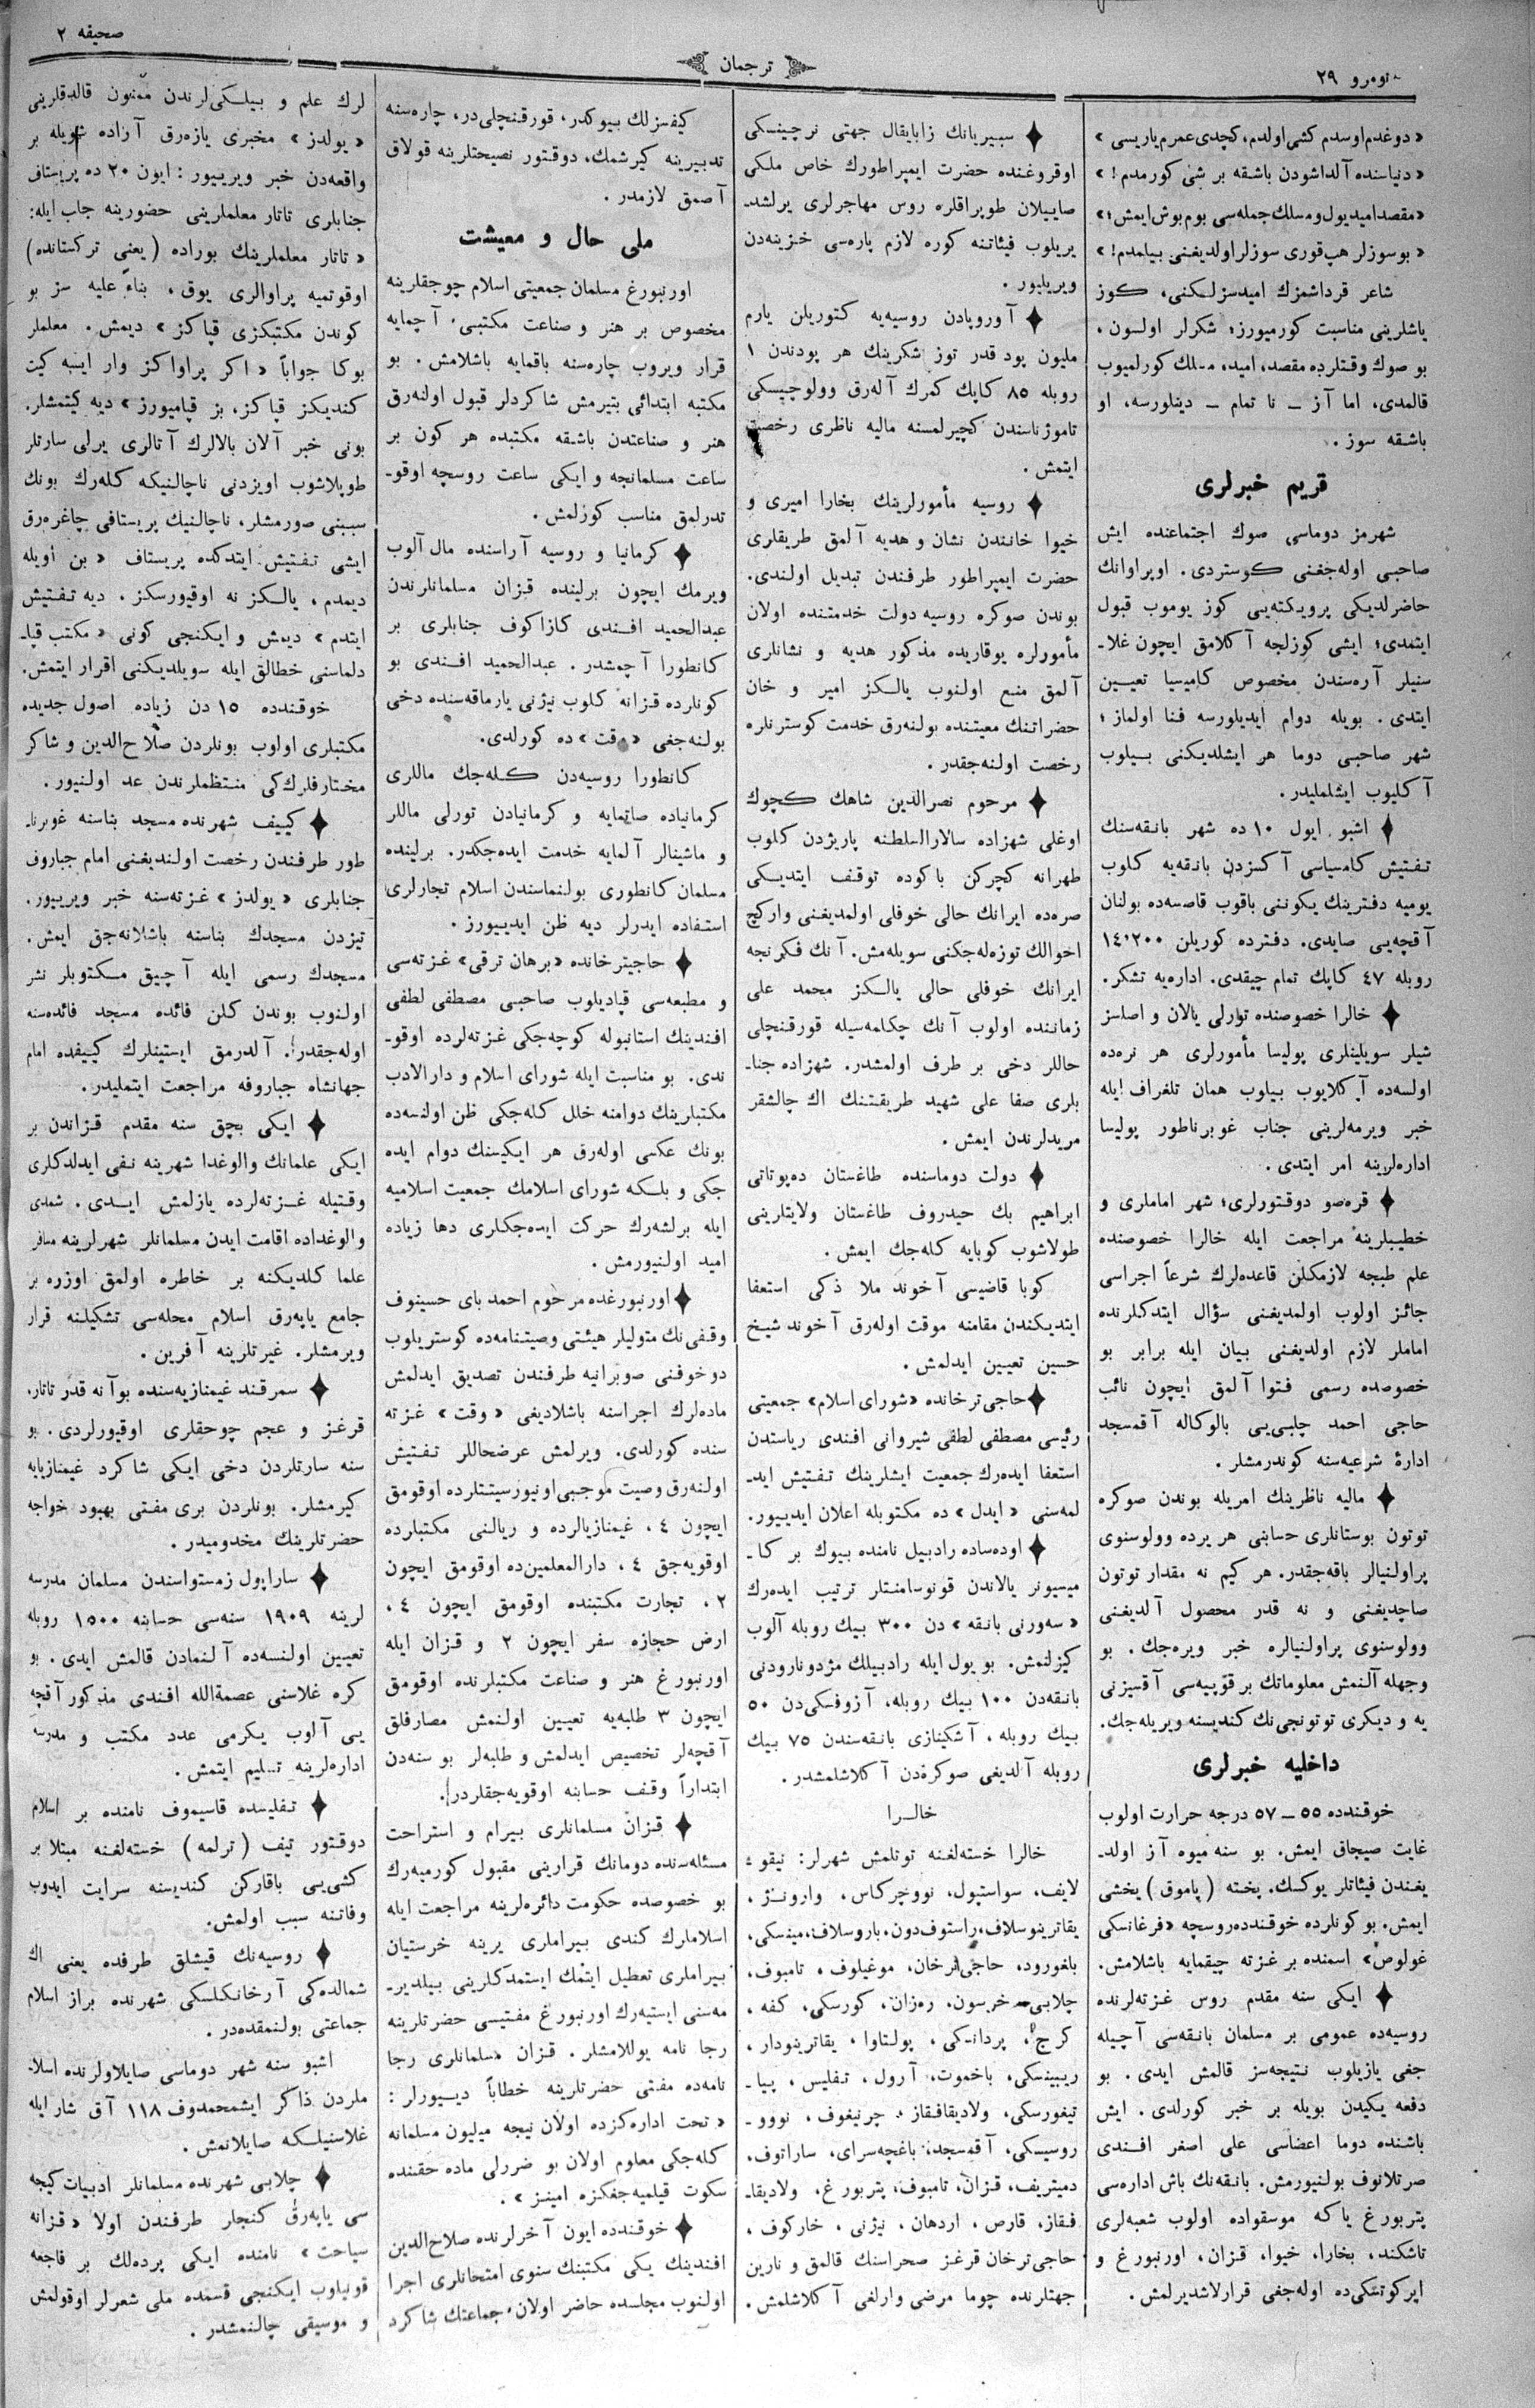 نومرو ۲۹
ترجمان
صحیفه ۲
« دوغدم اوسدم كشی اولدم، كچدی عمرم یاریسی »
« دنیاسنده آلداشودن باشقه بر شئ كورمدم! »
« مقصد امید یول و مسلك جمله سی بوم بوش ایمش؛ »
« بو سوزلر هپ قوری سوزلر اولدیغنی بیلمدم! »
شاعر قرداشمزك امیدسزلكنی، كوز
یاشلرینی مناسبت كورمیورز؛ شكرلر اولسون،
بو صوك وقتلرده مقصد، امید، مسلك كورلمیوب
قالمدی، اما آز ـ نا تمام ـ دینلورسه، او
باشقه سوز.
قریم خبرلری
شهرمز دوماسی صوك اجتماعنده ایش
صاحبی اوله‌جغنی كوستردی. اوپراوانك
حاضرلدیكی پرویكته‌یی كوز یوموب قبول
ایتمدی؛ ایشی كوزلجه آكلامق ایچون غلا-
سنیلر آره‌سندن مخصوص كامیسیا تعیین
ایتدی. بویله دوام ایدیلورسه فنا اولماز؛
شهر صاحبی دوما هر ایشلدیكنی بیلوب
آكلیوب ایشلملیدر.
✦ اشبو ایول ۱۰ ده شهر بانقه‌سنك
تفتیش كامسیاسی آكسزدن بانقه‌یه كلوب
یومیه دفترینك یكوننی باقوب قاصه‌ده بولنان
آقچه‌یی صایدی. دفترده كوریلن ۱٤،۲۰۰
روبله ٤۷ كاپك تمام چیقدی. اداره‌یه تشكر.
✦ خالرا خصوصنده تورلی یالان و اصلسز
شیلر سویلینلری پولیسا مأمورلری هر نره‌ده
اولسه‌ده آیكلایوب بیلوب همان تلغراف ایله
خبر ویرمه‌لرینی جناب غوبرناطور پولیسا
اداره‌لرینه امر ایتدی.
✦ قره‌صو دوقتورلری؛ شهر اماملری و
خطیبلرینه مراجعت ایله خالرا خصوصنده
علم طبجه لازمكلن قاعده‌لرك شرعاً اجراسی
جائز اولوب اولمدیغنی سؤال ایتدكلرنده
اماملر لازم اولدیغنی بیان ایله برابر بو
خصوصده رسمی فتوا آلمق ایچون نائب
حاجی احمد چلبی‌یی بالوكاله آقمسجد
ادارۀ شرعیه‌سنه كوندرمشلر.
✦ مالیه ناظرینك امریله بوندن صوكره
توتون بوستانلری حسابنی هر یرده وولوسنوی
پراولنیالر باقه‌جقدر. هر كیم نه مقدار توتون
صاچدیغنی و نه قدر محصول آلدیغنی
وولوسنوی پراولنیالره خبر ویره‌جك. بو
وجهله آلنمش معلوماتك بر قوپیه‌سی آقسیزنی
یه و دیكری توتونجی‌نك كندیسنه ویریله‌جك.
داخلیه خبرلری
خوقندده ۵۵ ـ ۵۷ درجه حرارت اولوب
غایت صیجاق ایمش. بو سنه میوه آز اولد-
یغندن فیئاتلر یوكسك. پخته (پاموق) یخشی
ایمش. بو كونلرده خوقندده روسچه «فرغانسكی
غولوص» اسمنده بر غزته چیقمایه باشلامش.
✦ ایكی سنه مقدم روس غزته‌لرنده
روسیه‌ده عمومی بر مسلمان بانقه‌سی آچیله
جغی یازیلوب نتیجه‌سز قالمش ایدی. بو
دفعه یكیدن بویله بر خبر كورلدی. ایش
باشنده دوما اعضاسی علی اصغر افندی
صرتلانوف بولنیورمش. بانقه‌نك باش اداره‌سی
پتربورغ یاكه موسقواده اولوب شعبه‌لری
تاشكند، بخارا، خیوا، قزان، اورنبورغ و
ایركوتسكی‌ده اوله‌جغی قرارلاشدیرلمش.
✦ سبیریانك زابایقال جهتی نرچینسكی
اوقروغنده حضرت ایمپراطورك خاص ملكی
صاییلان طوپراقلره روس مهاجرلری یرلشد-
یریلوب فیئاتنه كوره لازم پاره‌سی خزینه‌دن
ویریلیور.
✦ آوروپادن روسیه‌یه كتوریلن یارم
ملیون پود قدر توز شكرینك هر پودندن ۱
روبله ۸۵ كاپك كمرك آله‌رق وولوچیسكی
تاموژناسندن كچیرلمسنه مالیه ناظری رخصت
ایتمش.
✦ روسیه مأمورلرینك بخارا امیری و
خیوا خانندن نشان و هدیه آلمق طریقلری
حضرت ایمپراطور طرفندن تبدیل اولندی.
بوندن صوكره روسیه دولت خدمتنده اولان
مأمورلره یوقاریده مذكور هدیه و نشانلری
آلمق منع اولنوب یالكز امیر و خان
حضراتنك معیتنده بولنه‌رق خدمت كوسترنلره
رخصت اولنه‌جقدر.
✦ مرحوم نصرالدین شاهك كچوك
اوغلی شهزاده سالارالسلطنه پاریژدن كلوب
طهرانه كچركن باكوده توقف ایتدیكی
صره‌ده ایرانك حالی خوفلی اولمدیغنی وار كچ
احوالك توزه‌له‌جكنی سویله‌مش. آنك فكرنجه
ایرانك خوفلی حالی یالكز محمد علی
زماننده اولوب آنك چكلمه‌سیله قورقنچلی
حاللر دخی بر طرف اولمشدر. شهزاده جنا-
بلری صفا علی شهید طریقتنك اك چالشقر
مریدلرندن ایمش.
✦ دولت دوماسنده طاغستان ده‌پوتاتی
ابراهیم بك حیدروف طاغستان ولایتلرینی
طولاشوب كوبایه كله‌جك ایمش.
كوبا قاضیسی آخوند ملا ذكی استعفا
ایتدیكندن مقامنه موقت اوله‌رق آخوند شیخ
حسین تعیین ایدلمش.
✦ حاجی ترخانده «شورای اسلام» جمعیتی
رئیسی مصطفی لطفی شیروانی افندی ریاستدن
استعفا ایده‌رك جمعیت ایشلرینك تفتیش اید-
لمه‌سنی «ایدل» ده مكتوبله اعلان ایدییور.
✦ اوده‌ساده رادبیل نامنده بیوك بر كا-
میسیونر یالاندن قونوسامنتلر ترتیب ایده‌رك
«سه‌ورنی بانقه» دن ۳۰۰ بیك روبله آلوب
كیزلنمش. بو یول ایله رادبیلك مژدونارودنی
بانقه‌دن ۱۰۰ بیك روبله، آزوفسكی‌دن ۵۰
بیك روبله، آشكینازی بانقه‌سندن ۷۵ بیك
روبله آلدیغی صوكره‌دن آكلاشلمشدر.
خالـرا
خالرا خسته‌لغنه توتلمش شهرلر: نیقو-
لایف، سواستپول، نووچركاس، وارونژ،
یقاترینوسلاف، راستوف دون، یاروسلاف، مینسكی،
بلغورود، حاجی ترخان، موغیلوف، تامبوف،
چلابی، خرسون، ره‌زان، كورسكی، كفه،
كرچ، پولتاوا، یقاترینودار،
ریبینسكی، باخموت، آرول، تفلیس، پیا-
تیغورسكی، ولادیقافقاز، چرنیغوف، نووو-
روسیسكی، آقمسجد، باغچه‌سرای، ساراتوف،
دمیتریف، قزان، تامبوف، پتربورغ، ولادیقا-
فقاز، قارص، اردهان، نیژنی، خاركوف،
حاجی ترخان قرغز صحراسنك قالمق و نارین
جهتلرنده چوما مرضی وارلغی آكلاشلمش.
كیفسزلك بیوكدر، قورقنچلی‌در، چاره‌سنه
تدبیرینه كیرشمك، دوقتور نصیحتلرینه قولاق
آصمق لازمدر.
ملی حال و معیشت
اورنبورغ مسلمان جمعیتی اسلام چوجقلرینه
مخصوص بر هنر و صناعت مكتبی آچمایه
قرار ویروب چاره‌سنه باقمایه باشلامش. بو
مكتبه ابتدائی بتیرمش شاكردلر قبول اولنه‌رق
هنر و صناعتدن باشقه مكتبده هر كون بر
ساعت مسلمانجه و ایكی ساعت روسچه اوقو-
تدرلمق مناسب كوزلمش.
✦ كرمانیا و روسیه آراسنده مال آلوب
ویرمك ایچون برلینده قزان مسلمانلرندن
عبدالحمید افندی كازاكوف جنابلری بر
كانطورا آچمشدر. عبدالحمید افندی بو
كونلرده قزانه كلوب نیژنی یارماقه‌سنده دخی
بولنه‌جغی «وقت» ده كورلدی.
كانطورا روسیه‌دن كله‌جك ماللری
كرمانیاده صاتمایه و كرمانیادن تورلی ماللر
و ماشینالر آلمایه خدمت ایده‌جكدر. برلینده
مسلمان كانطوری بولنماسندن اسلام تجارلری
استفاده ایدرلر دیه ظن ایدییورز.
✦ حاجیترخانده «برهان ترقی» غزته‌سی
و مطبعه‌سی قپادیلوب صاحبی مصطفی لطفی
افندینك استانبوله كوچه‌جكی غزته‌لرده اوقو-
ندی. بو مناسبت ایله شورای اسلام و دارالادب
مكتبلرینك دوامنه خلل كله‌جكی ظن اولنسه‌ده
بونك عكسی اوله‌رق هر ایكیسنك دوام ایده
جكی و بلكه شورای اسلامك جمعیت اسلامیه
ایله برلشه‌رك حركت ایده‌جكلری دها زیاده
امید اولنیورمش.
✦ اورنبورغده مرحوم احمد بای حسینوف
وقفی‌نك متولیلر هیئتی وصیتنامه‌ده كوستریلوب
دوخوفنی صوبرانیه طرفندن تصدیق ایدلمش
ماده‌لرك اجراسنه باشلادیغی «وقت» غزته
سنده كورلدی. ویرلمش عرضحاللر تفتیش
اولنه‌رق وصیت موجبی اونیورسیتتلرده اوقومق
ایچون ٤، غیمنازیالرده و ریالنی مكتبلرده
اوقویه‌جق ٤، دارالمعلمین‌ده اوقومق ایچون
۲، تجارت مكتبنده اوقومق ایچون ٤،
ارض حجازه سفر ایچون ۲ و قزان ایله
اورنبورغ هنر و صناعت مكتبلرنده اوقومق
ایچون ۳ طلبه‌یه تعیین اولنمش مصارفلق
آقچه‌لر تخصیص ایدلمش و طلبه‌لر بو سنه‌دن
ابتداراً وقف حسابنه اوقویه‌جقلردر.
✦ قزان مسلمانلری بیرام و استراحت
مسئله‌سنده دومانك قرارینی مقبول كورمیه‌رك
بو خصوصده حكومت دائره‌لرینه مراجعت ایله
اسلاملرك كندی بیراملری یرینه خرستیان
بیراملری تعطیل ایتمك ایستمدكلرینی بیلدیر-
مه‌سنی ایستیه‌رك اورنبورغ مفتیسی حضرتلرینه
رجا نامه یوللامشلر. قزان مسلمانلری رجا
نامه‌ده مفتی حضرتلرینه خطاباً دییورلر:
«تحت اداره‌كزده اولان نیچه میلیون مسلمانه
كله‌جكی معلوم اولان بو ضررلی ماده حقنده
سكوت قیلمیه‌جغكزه امینز».
✦ خوقندده ایون آخرلرنده صلاح‌الدین
افندینك یكی مكتبنك سنوی امتحانلری اجرا
اولنوب مجلسده حاضر اولان جماعتك شاكرد
لرك علم و بیلكی‌لرندن ممنون قالدقلرینی
«یولدز» مخبری یازه‌رق آراده شویله بر
واقعه‌دن خبر ویرییور: ایون ۲۰ ده پریستاف
جنابلری تاتار معلملرینی حضورینه جاب ایله:
«تاتار معلملرینك بوراده (یعنی تركستانده)
اوقوتمیه پراوالری یوق، بناءً علیه سز بو
كوندن مكتبكزی قپاكز» دیمش. معلملر
بوكا جواباً «اكر پراواكز وار ایسه كیت
كندیكز قپاكز، بز قپامیورز» دیه كیتمشلر.
بونی خبر آلان بالالرك آتالری یرلی سارتلر
طوپلاشوب اویزدنی ناچالنیكه كله‌رك بونك
سببنی صورمشلر، ناچالنیك پریستافی چاغره‌رق
ایشی تفتیش ایتدكده پریستاف «بن اویله
دیمدم، یالكز نه اوقیورسكز، دیه تفتیش
ایتدم» دیمش و ایكنجی كونی «مكتب قپا-
دلماسنی خطالق ایله سویلدیكنی اقرار ایتمش.
خوقندده ۱۵ دن زیاده اصول جدیده
مكتبلری اولوب بونلردن صلاح‌الدین و شاكر
مختارفلرك‌كی منتظملرندن عد اولنیور.
✦ كییف شهرنده مسجد بناسنه غوبرنا-
طور طرفندن رخصت اولندیغنی امام جباروف
جنابلری «یولدز» غزته‌سنه خبر ویرییور.
تیزدن مسجدك بناسنه باشلانه‌جق ایمش.
مسجدك رسمی ایله آچیق مكتوبلر نشر
اولنوب بوندن كلن فائده مسجد فائده‌سنه
اوله‌جقدر. آلدرمق ایستینلرك كییفده امام
جهانشاه جباروفه مراجعت ایتملیدر.
✦ ایكی بچق سنه مقدم قزاندن بر
ایكی علمانك والوغدا شهرینه نفی ایدلدكلری
وقتیله غزته‌لرده یازلمش ایدی. شمدی
والوغداده اقامت ایدن مسلمانلر شهرلرینه مسافر
علما كلدیكنه بر خاطره اولمق اوزره بر
جامع یاپه‌رق اسلام محله‌سی تشكیلنه قرار
ویرمشلر. غیرتلرینه آفرین.
✦ سمرقند غیمنازیه‌سنده بو آنه قدر تاتار،
قرغز و عجم چوجقلری اوقیورلردی. بو
سنه سارتلردن دخی ایكی شاكرد غیمنازیایه
كیرمشلر. بونلردن بری مفتی بهبود خواجه
حضرتلرینك مخدومیدر.
✦ ساراپول زمستواسندن مسلمان مدرسه
لرینه ۱۹۰۹ سنه‌سی حسابنه ۱۵۰۰ روبله
تعیین اولنسه‌ده آلنمادن قالمش ایدی. بو
كره غلاسنی عصمةالله افندی مذكور آقچه
یی آلوب یكرمی عدد مكتب و مدرسه
اداره‌لرینه تسلیم ایتمش.
✦ تفلیسده قاسیموف نامنده بر اسلام
دوقتور تیف (ترلمه) خسته‌لغنه مبتلا بر
كشی‌یی باقاركن كندیسنه سرایت ایدوب
وفاتنه سبب اولمش.
✦ روسیه‌نك قیشلق طرفده یعنی اك
شمالده‌كی آرخانكلسكی شهرنده براز اسلام
جماعتی بولنمقده‌در.
اشبو سنه شهر دوماسی صایلاولرنده اسلا-
ملردن ذاكر ایشمحمدوف ۱۱۸ آق شار ایله
غلاسنیلكه صایلانمش.
✦ چلابی شهرنده مسلمانلر ادبیات كیجه
سی یاپه‌رق كنجلر طرفندن اولا «قزانه
سیاحت» نامنده ایكی پرده‌لك بر فاجعه
قونیلوب ایكنجی قسمده ملی شعرلر اوقولمش
و موسیقی چالنمشدر.